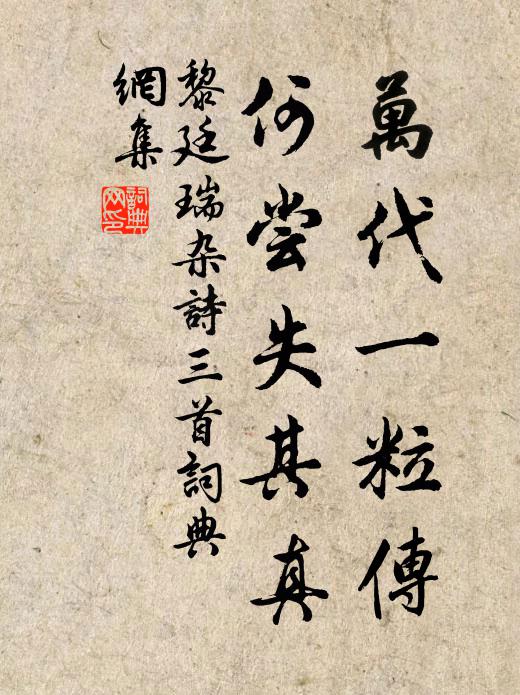 萬代一粒傳
何尝失其真
黎廷瑞杂詩三首詞典
網集
詞典
网印